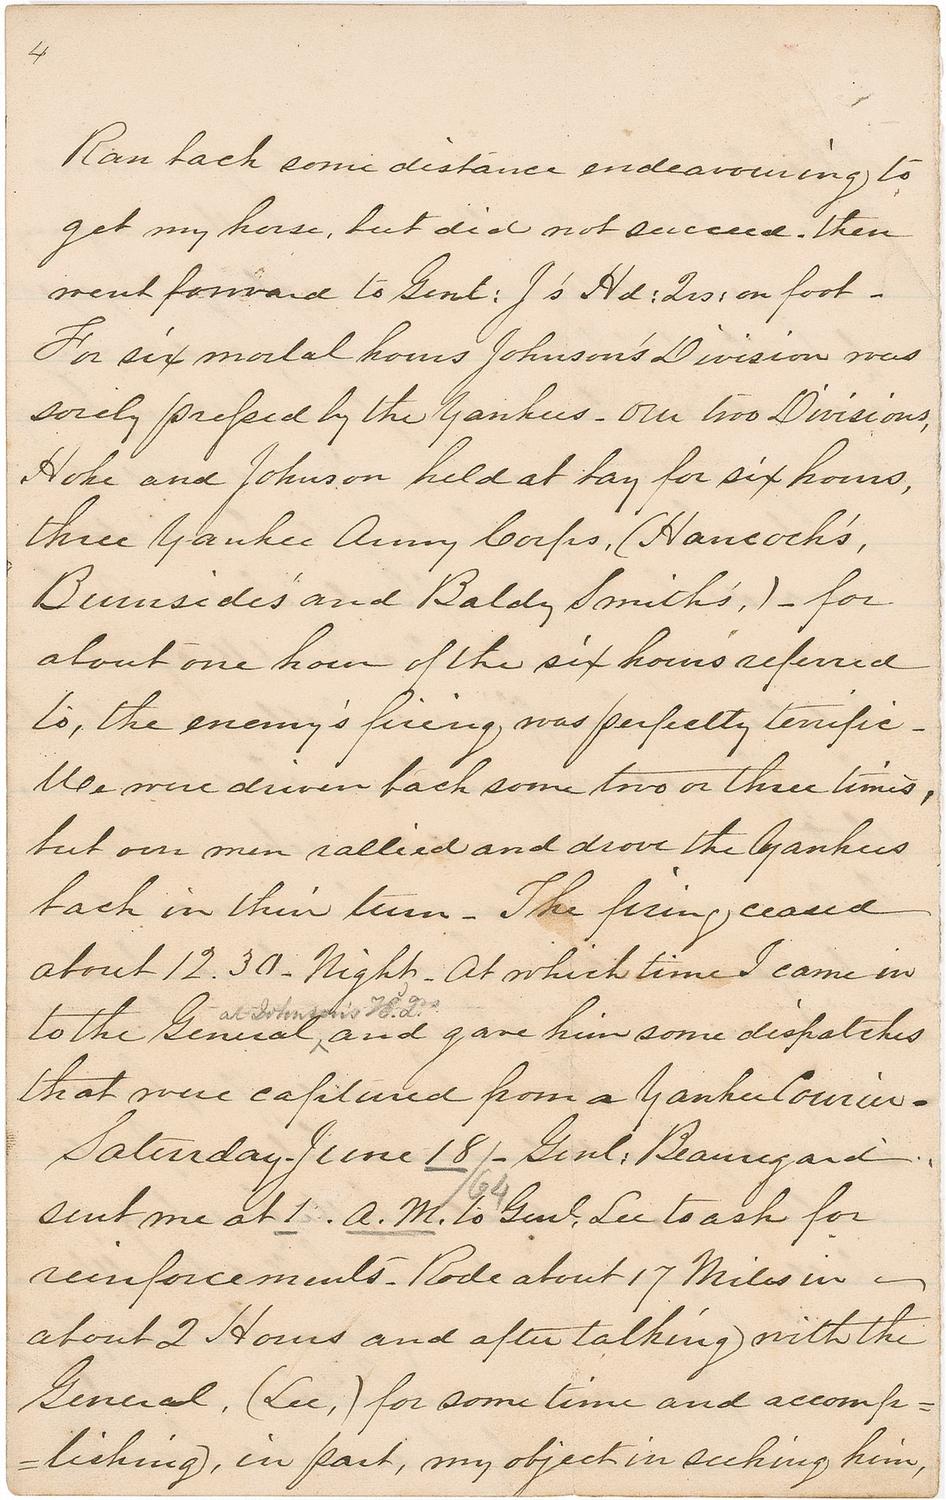 4
Ran back some distance endeavouring to
get my horse, but did not succeed. then
went forward to Genl: J's Hd: Qrs: on foot -
For six mortal hours Johnson's Division was
sorely pressed by the Yankees - our two Divisions,
Hoke and Johnson held at bay for six hours,
three Yankee Army Corps, (Hancock's,
Burnside's and Baldy Smith's,) - for
about one hour of the six hours referred
to, the enemy's fireing was perfectly terrific -
We were driven back some two or three times,
but our men rallied and drove the Yankees
back in thier turn - The firing ceased
about 12.30 - Night - At which time I came in
at Johnson's Hd. Qrs
to the General, ^ and gave him some dispatches
that were captured from a Yankee Courier -
Saturday - June 18/ - Genl: Beauregard
/64
sent me at 1. A.M. to Genl. Lee to ask for
reinforcements - Rode about 17 Miles in -
about 2 Hours and after talking with the
General, (Lee,) for some time and accomp=
=lishing, in part, my object in seeking him,